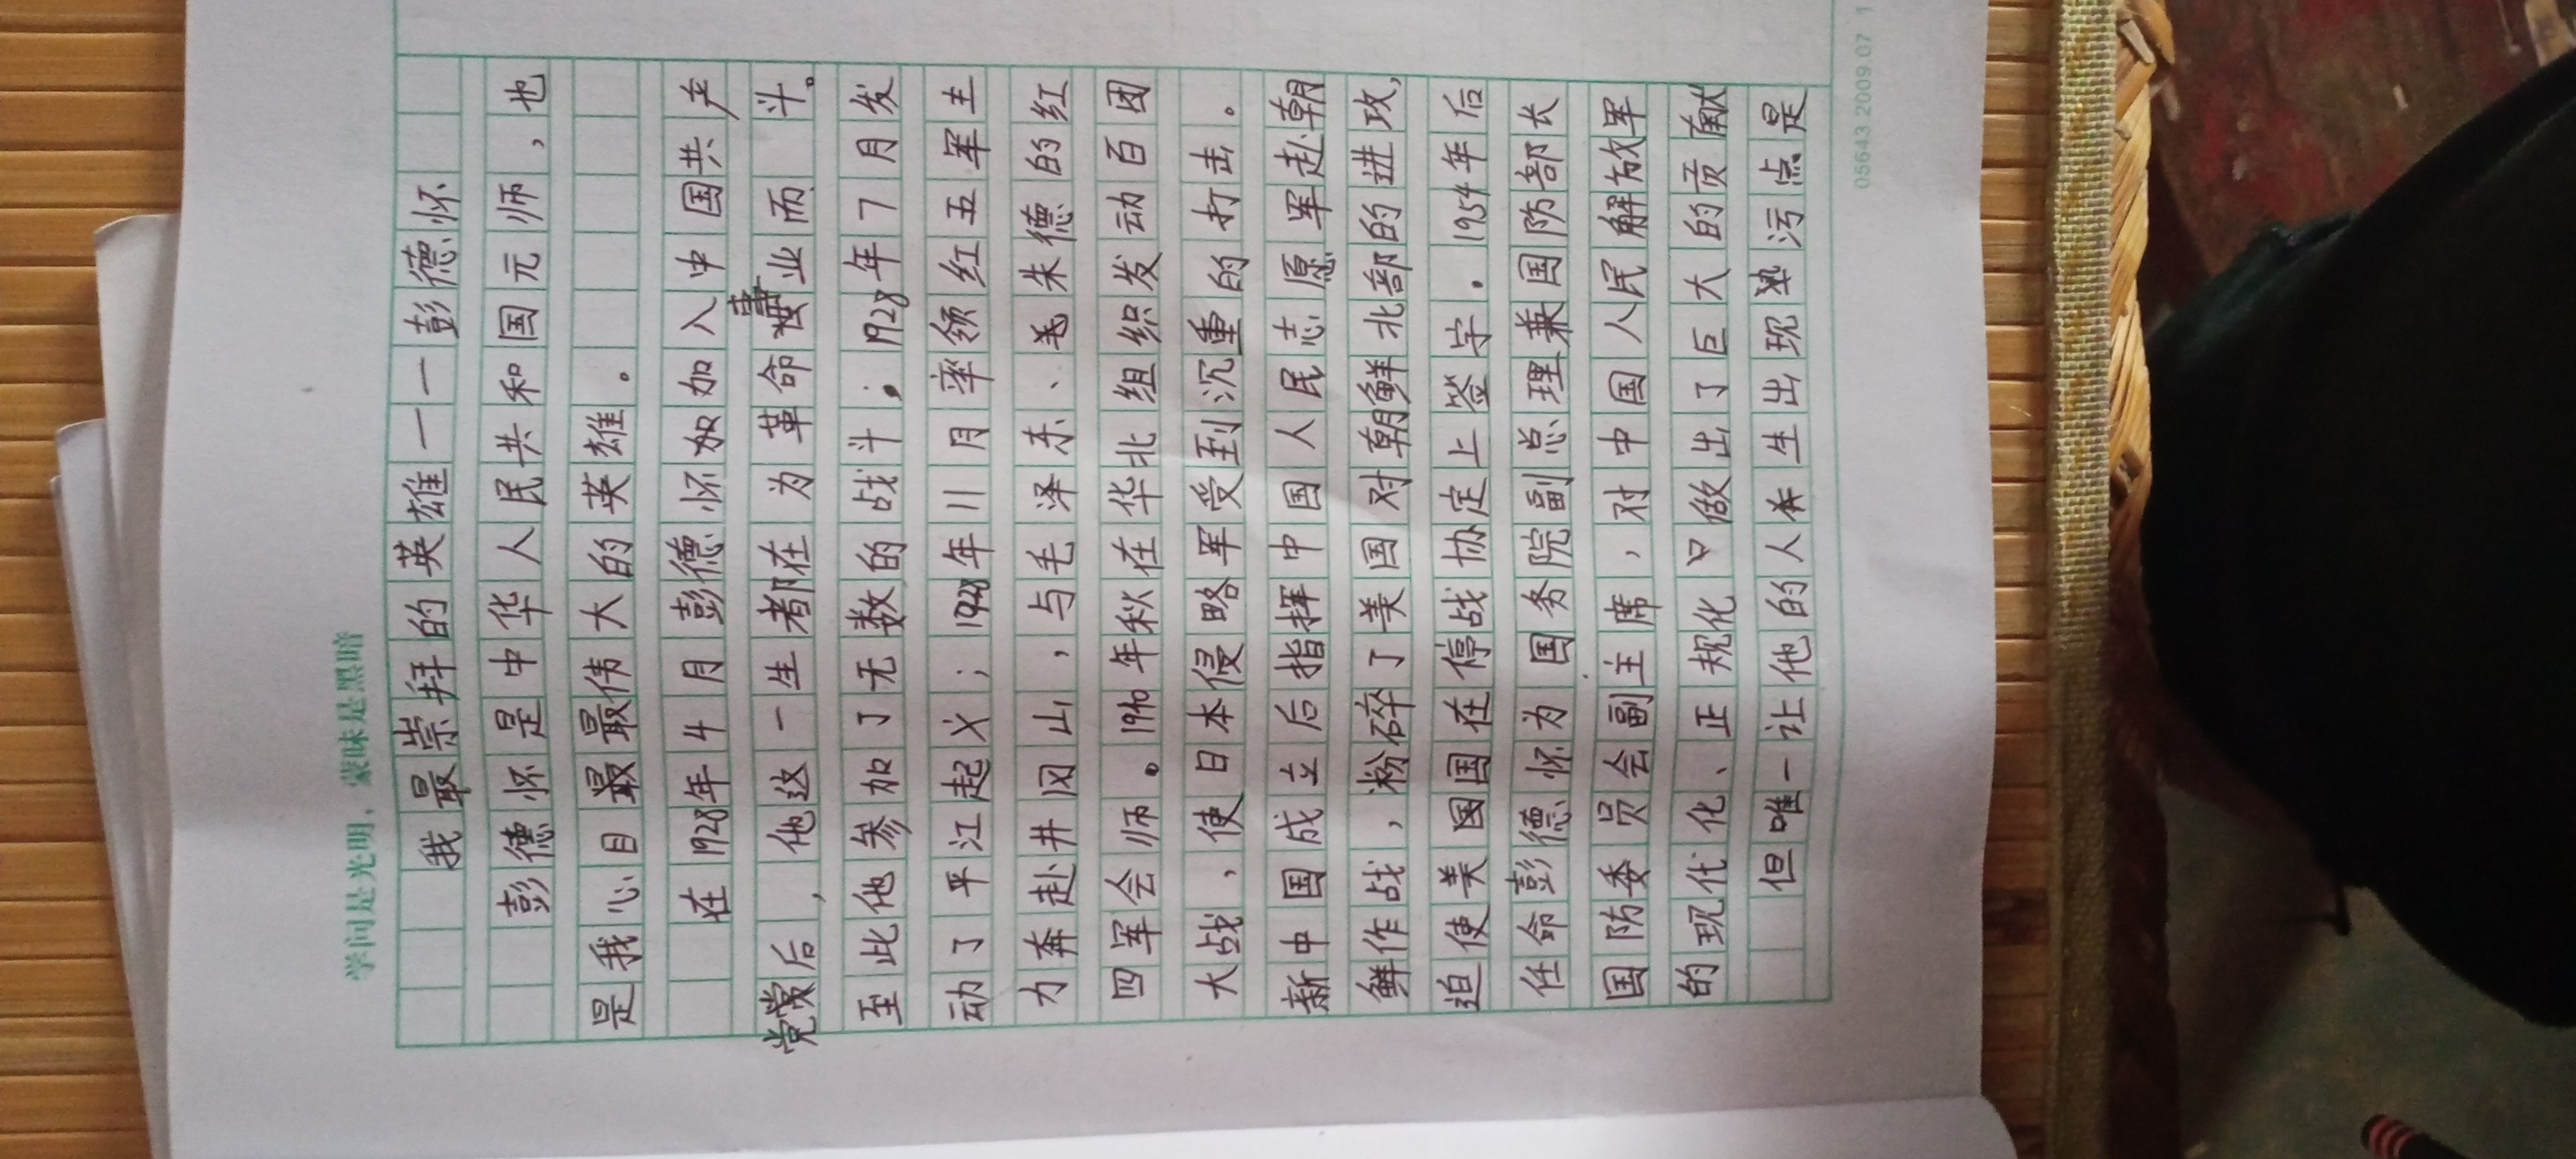 学问是光明，蒙昧是黑暗
我最崇拜的英雄——彭德怀
彭德怀是中华人民共和国元师，也
是我心目最最伟大的英雄。
在1928年4月彭德怀加加入中国共产
党党后，他这一生都在为革命事业而斗。
至此他参加了无数的战斗；1928年7月发
动了平江起义；1928年11月率领红五军主
力奔赴井冈山，与毛泽东、朱德的红
四军会师。1940年秋在华北组织发动百团
大战，使日本侵略军受到沉重的打击。
新中国成立后指挥中国人民志愿军赴朝
鲜作战，粉碎了美国对朝鲜北部的进攻，
迫使美国国在停战协定上签字．1954年后
任命彭德怀为国务院副总理兼国防部长
国防委员会副主席，对中国人民解放军
的现代化、正规化做出了巨大的贡献
但唯一让他的人生出现污点是
05643 2009.07 1